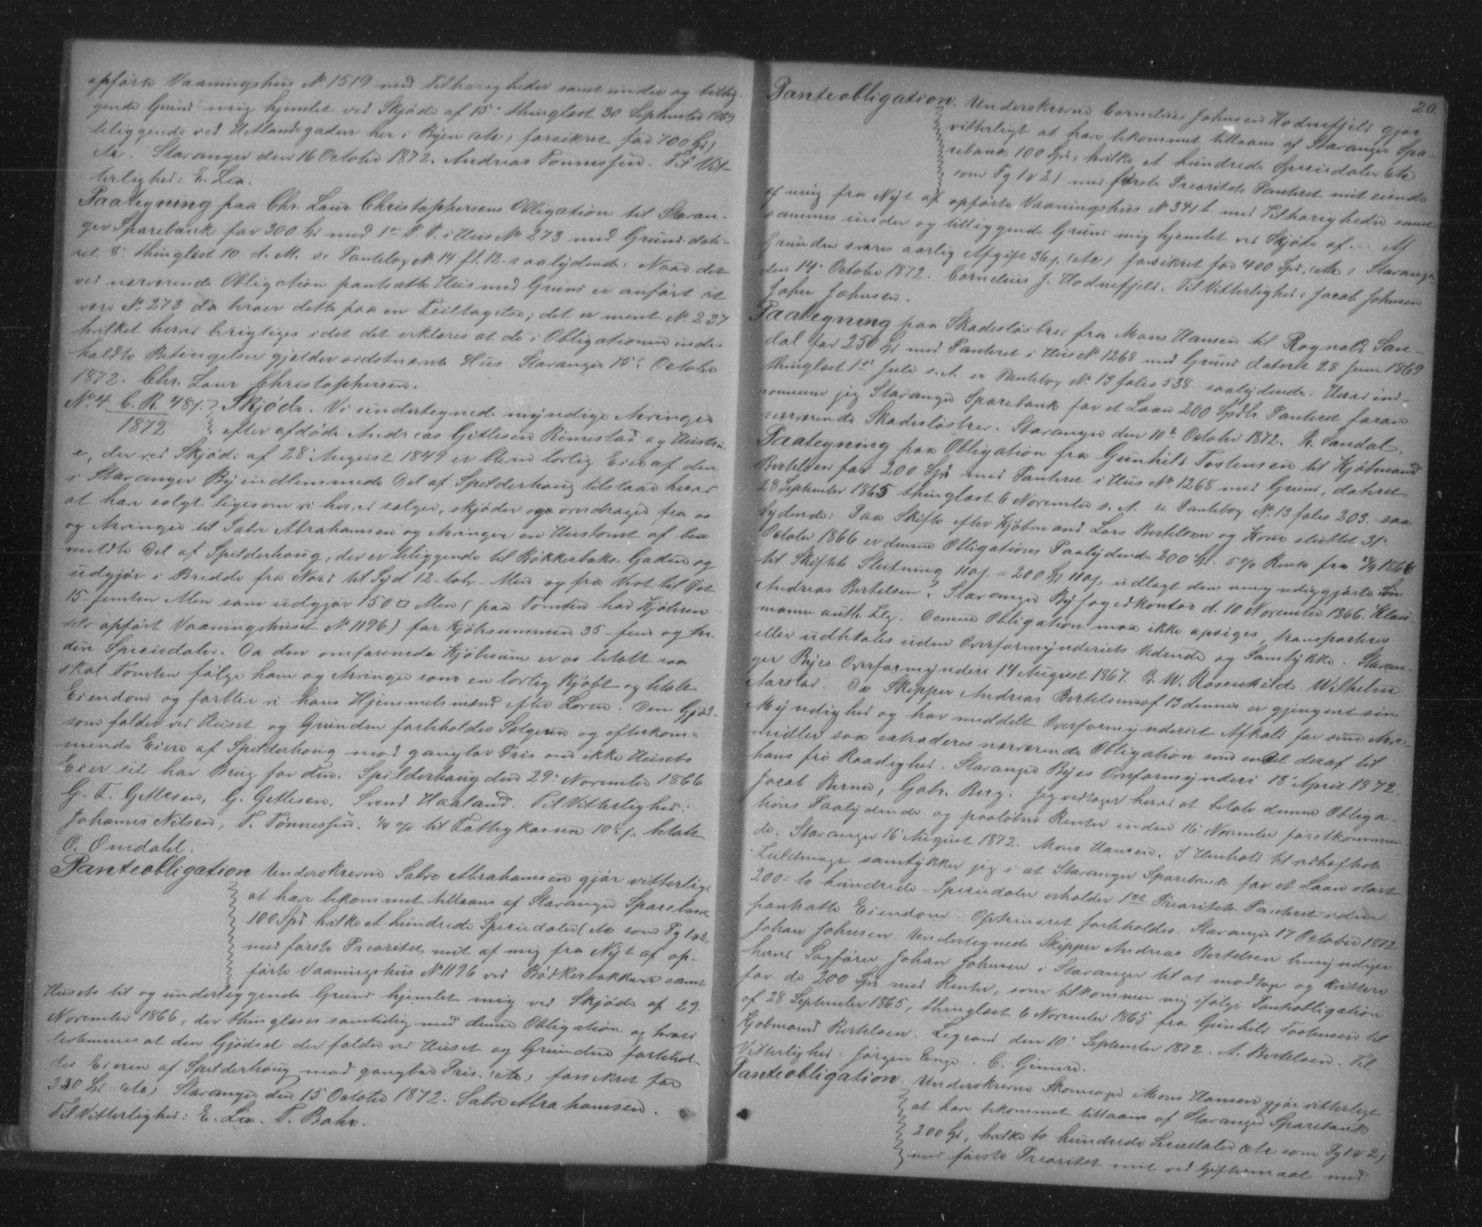 opførte Vaaningshus No 1519 med Tilhørigheder samt under og tillig-
gende Grund mig hjemlet ved Skjøde af 15. thinglæst 30 September 1869
beliggende ved Hetlandsgaden her i Byen (etc) forsikret for 700 Spd)
etc. Stavanger den 16 October 1872. Andreas Tønnessen. Til Vit-
terlighed: E. Lea.
Paategning paa Chr. Laur Christophersens Obligation til Stavan-
ger Sparebank for 300 Spd med 1ste P. P. i Huus No 273 med Grund date-
ret 8. thinglæst 10 d. M. se Pantebog No 14 fl. 12 saalydende: Naar det
ved nærværende Obligation pantsatte Huus med Grund er anført at
være No 273 da beroer dette paa en Feiltagelse; det er ment No 237
hvilket herved berigtiges idet det erklæres at de i Obligationen inde-
holdte Betingelser gjælder sidstnævnte Huus. Stavanger 15de October
1872. Chr. Laur Christophersen.
No 4 C. R. 48/. Skjøde. Vi undertegnede myndige Arvinger
1872 efter afdøde Andreas Gitlesen Rimestad og Hustru
e, der ved Skjøde af 28 August 1849 er bleven lovlig Eier af den
i Stavanger By indlemmede Del af Spilderhaug tilstaar herved
at have solgt ligesom vi herved sælger, skjøder og overdrager fra os
og Arvinger til Salve Abrahamsen og Arvinger en Huustomt af be-
meldte Del af Spilderhaug, der er beliggende til Bøkkerbakke Gaden og
udgjør i Bredde fra Nord til Syd 12 tolv Alen og fra Vest til Øst
15 femten Alen som udgjør 150 □ Alen (paa Tomten har Kjøberen
selv opført Vaaningshuset No 1196) for Kjøbesummen 35 fem og tre-
dive Speciedaler. Da den omforenede Kjøbesum er os betalt saa
skal Tomten følge ham og Arvinger som en lovlig kjøbt og betalt
Eiendom og forblive vi hans Hjemmelsmænd efter Loven. Den Gjød-
sel som falder ved Huset og Grunden forbeholdes Sælgeren og efterkom-
mende Eiere af Spilderhaug mod gangbar Pris om ikke Husets
Eier sel har Brug for den. Spilderhaug den 29. November 1866
G. T. Gitlesen, G. Gitlesen, Svend Haaland. Til Vitterlighed:
Johannes Nilsen, T. Tønnessen. 1/4 % til Fattigkassen 10 s. betalt
O. Omdahl.
Panteobligation Underskrevne Salve Abrahamsen gjør vitterligt
at have bekommet tillaans af Stavanger Sparebank
100 Spd hvilke et hundrede Speciedaler (etc som Pg 1 & 2)
med første Prioritet mit af mig fra Nyt af op-
førte Vaaningshus No 1196 ved Bødkerbakken samt
Husets til og underliggende Grund hjemlet mig ved Skjøde af 29
November 1866, der thinglæses samtidig med denne Obligation og hvori
bestemmes at den Gjødsel der falder ved Huset og Grunden forbehol-
des Eieren af Spilderhaug mod gangbar Pris (etc) forsikret for
330 Spd (etc) Stavanger den 15 October 1872. Salve Abrahamsen.
Til Vitterlighed: E. Lea. T. Bahr.
20
Panteobligation. Underskrevne Cornelius Johnsen Hodnefjeld gjør
vitterligt at have bekommet tillaans af Stavanger Spa-
rebank 100 Spd, hvilke et hundrede Speciedaler (etc
som Pg 1 & 2) med første Prioritets Panteret mit eiende
af mig fra Nyt af opførte Vaaningshus No 341 b. med Tilhørigheder samt
sammes under og tilliggende Grund mig hjemlet ved Skjøde af .... Af
Grunden svares aarlig Afgift 36 s. (etc) forsikret for 400 Spd, (etc) Stavanger
den 14. October 1872. Cornelius J. Hodnefjeld. Til Vitterlighed: Jacob Johnsen
Johan Johnsen.
Paategning paa Skadesløsbrev fra Mons Hansen til Rognald San-
dal for 250 Spd med Panteret i Huus No 1268 med Grund dateret 28 Juni 1869
thinglæst 1ste Juli s. A. se Pantebog No 13 folio 538 saalydende: Herved ind-
rømmer jeg Stavanger Sparebank for et Laan 200 Spdlr Panteret foran
nærværende Skadesløsbrev. Stavanger den 10de October 1872. R. Sandal.
Paategning paa Obligation fra Gunhild Tostensen til Kjøbmand
Bertelsen for 200 Spd med Panteret i Huus No 1268 med Grund, dateret
28 September 1865 thinglæst 6 November s. A. se Pantebog No 13 folio 203. saa-
lydende: Paa Skifte efter Kjøbmand Lars Bertelsen og Kone sluttet 31.
October 1866 er denne Obligations Paalydende 200 Spd. 5 % Rente fra 1866
til Skiftets Slutning 110 s. = 200 Spd 110 s. udlagt den umyndiggjorte Søn
Andreas Bertelsen. Stavanger Byfogedkontor d. 10 November 1866. Klau-
mann auth. Llg. Denne Obligation maa ikke opsiges, transporteres
eller udbetales uden Overformynderiets Vidende og Samtykke. Stavan-
ger Byes Overformynderi 14 August 1867. P. W. Rosenkilde. Wilhelm
Aarstad. Da Skipper Andreas Bertelsen af 13 dennes er gjengivet sin
Myndighed og har meddelt Overformynderiet Afkald for sine Arve-
midler saa extraderes nærværende Obligation som en Del deraf til
hans frie Raadighed. Stavanger Byes Overformynderi 18 April 1872.
Jacob Berner, Gabr. Berg. Jeg vedtager herved at betale denne Obliga-
tions Paalydende og paaløbne Renter inden 16 November førstkommen-
de. Stavanger 16 August 1872. Mons Hansen. I Henhold til vedheftede
Fuldmagt samtykker jeg i at Stavanger Sparebank for et Laan stort
200 = to hundrede = Speciedaler erholder 1ste Prioritets Panteret i den
pantsatte Eiendom. Opkravet forbeholdes. Stavanger 17 October 1872
Johan Johnsen. Undertegnede Skipper Andreas Bertelsen bemyndiger
herved Sagfører Johan Johnsen i Stavanger til at modtage og kvittere
for de 200 Spd med Renter, som tilkommer mig ifølge Panteobligation
af 28 September 1865, thinglæst 6 November 1865 fra Gunhild Tostensen til
Kjøbmand Bertelsen. Legrand den 10. September 1872. A. Bertelsen. Til
Vitterlighed: Jørgen Enge. C. Gunvre.
Panteobligation. Underskrevne Skomager Mons Hansen gjør vitterligt
at have bekommet tillaans af Stavanger Sparebank
200 Spd, hvilke to hundrede Speciedaler (etc som Pg 1 & 2)
med første Prioritet mit ved Giftermaal med